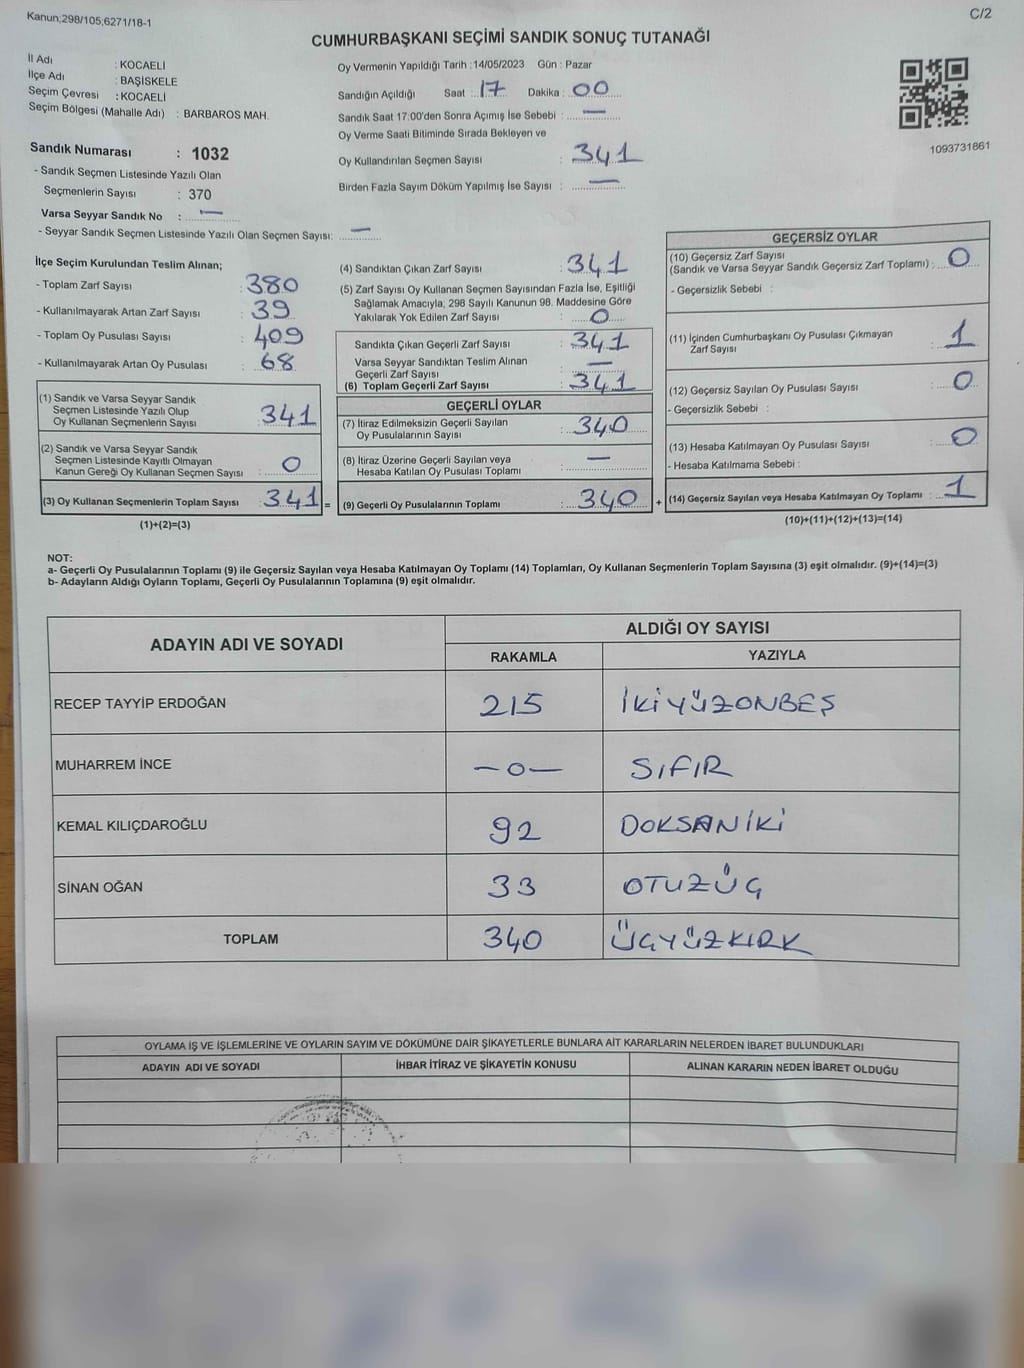 Kanun;298/105;6271/18-1
C/2
CUMHURBAŞKANI SEÇİMİ SANDIK SONUÇ TUTANAĞI
İl Adı : KOCAELİ
İlçe Adı : BAŞİSKELE
Seçim Çevresi : KOCAELİ
Seçim Bölgesi (Mahalle Adı) : BARBAROS MAH.
Sandık Numarası : 1032
- Sandık Seçmen Listesinde Yazılı Olan
Seçmenlerin Sayısı : 370
Varsa Seyyar Sandık No : —
- Seyyar Sandık Seçmen Listesinde Yazılı Olan Seçmen Sayısı: —
Oy Vermenin Yapıldığı Tarih :14/05/2023 Gün : Pazar
Sandığın Açıldığı Saat : 17 Dakika : 00
Sandık Saat 17:00'den Sonra Açımış İse Sebebi : —
Oy Verme Saati Bitiminde Sırada Bekleyen ve
Oy Kullandırılan Seçmen Sayısı : 341
Birden Fazla Sayım Döküm Yapılmış İse Sayısı : —
1093731861
İlçe Seçim Kurulundan Teslim Alınan;
- Toplam Zarf Sayısı : 380
- Kullanılmayarak Artan Zarf Sayısı : 39
- Toplam Oy Pusulası Sayısı : 409
- Kullanılmayarak Artan Oy Pusulası : 68
(1) Sandık ve Varsa Seyyar Sandık
Seçmen Listesinde Yazılı Olup
Oy Kullanan Seçmenlerin Sayısı : 341
(2) Sandık ve Varsa Seyyar Sandık
Seçmen Listesinde Kayıtlı Olmayan
Kanun Gereği Oy Kullanan Seçmen Sayısı : 0
(3) Oy Kullanan Seçmenlerin Toplam Sayısı : 341 =
(1)+(2)=(3)
(4) Sandıktan Çıkan Zarf Sayısı : 341
(5) Zarf Sayısı Oy Kullanan Seçmen Sayısından Fazla İse, Eşitliği
Sağlamak Amacıyla, 298 Sayılı Kanunun 98. Maddesine Göre
Yakılarak Yok Edilen Zarf Sayısı : 0
Sandıkta Çıkan Geçerli Zarf Sayısı : 341
Varsa Seyyar Sandıktan Teslim Alınan
Geçerli Zarf Sayısı : —
(6) Toplam Geçerli Zarf Sayısı : 341
GEÇERLİ OYLAR
(7) İtiraz Edilmeksizin Geçerli Sayılan
Oy Pusulalarının Sayısı : 340
(8) İtiraz Üzerine Geçerli Sayılan veya
Hesaba Katılan Oy Pusulası Toplamı : —
(9) Geçerli Oy Pusulalarının Toplamı : 340 +
GEÇERSİZ OYLAR
(10) Geçersiz Zarf Sayısı
(Sandık ve Varsa Seyyar Sandık Geçersiz Zarf Toplamı) : 0
- Geçersizlik Sebebi :
(11) İçinden Cumhurbaşkanı Oy Pusulası Çıkmayan
Zarf Sayısı : 1
(12) Geçersiz Sayılan Oy Pusulası Sayısı : 0
- Geçersizlik Sebebi :
(13) Hesaba Katılmayan Oy Pusulası Sayısı : 0
- Hesaba Katılmama Sebebi :
(14) Geçersiz Sayılan veya Hesaba Katılmayan Oy Toplamı : 1
(10)+(11)+(12)+(13)=(14)
NOT:
a- Geçerli Oy Pusulalarının Toplamı (9) ile Geçersiz Sayılan veya Hesaba Katılmayan Oy Toplamı (14) Toplamları, Oy Kullanan Seçmenlerin Toplam Sayısına (3) eşit olmalıdır. (9)+(14)=(3)
b- Adayların Aldığı Oyların Toplamı, Geçerli Oy Pusulalarının Toplamına (9) eşit olmalıdır.
ADAYIN ADI VE SOYADI
ALDIĞI OY SAYISI
RAKAMLA YAZIYLA
RECEP TAYYİP ERDOĞAN 215 İKİYÜZONBEŞ
MUHARREM İNCE —0— SIFIR
KEMAL KILIÇDAROĞLU 92 DOKSANİKİ
SİNAN OĞAN 33 OTUZÜÇ
TOPLAM 340 ÜÇYÜZKIRK
OYLAMA İŞ VE İŞLEMLERİNE VE OYLARIN SAYIM VE DÖKÜMÜNE DAİR ŞİKAYETLERLE BUNLARA AİT KARARLARIN NELERDEN İBARET BULUNDUKLARI
ADAYIN ADI VE SOYADI İHBAR İTİRAZ VE ŞİKAYETİN KONUSU ALINAN KARARIN NEDEN İBARET OLDUĞU